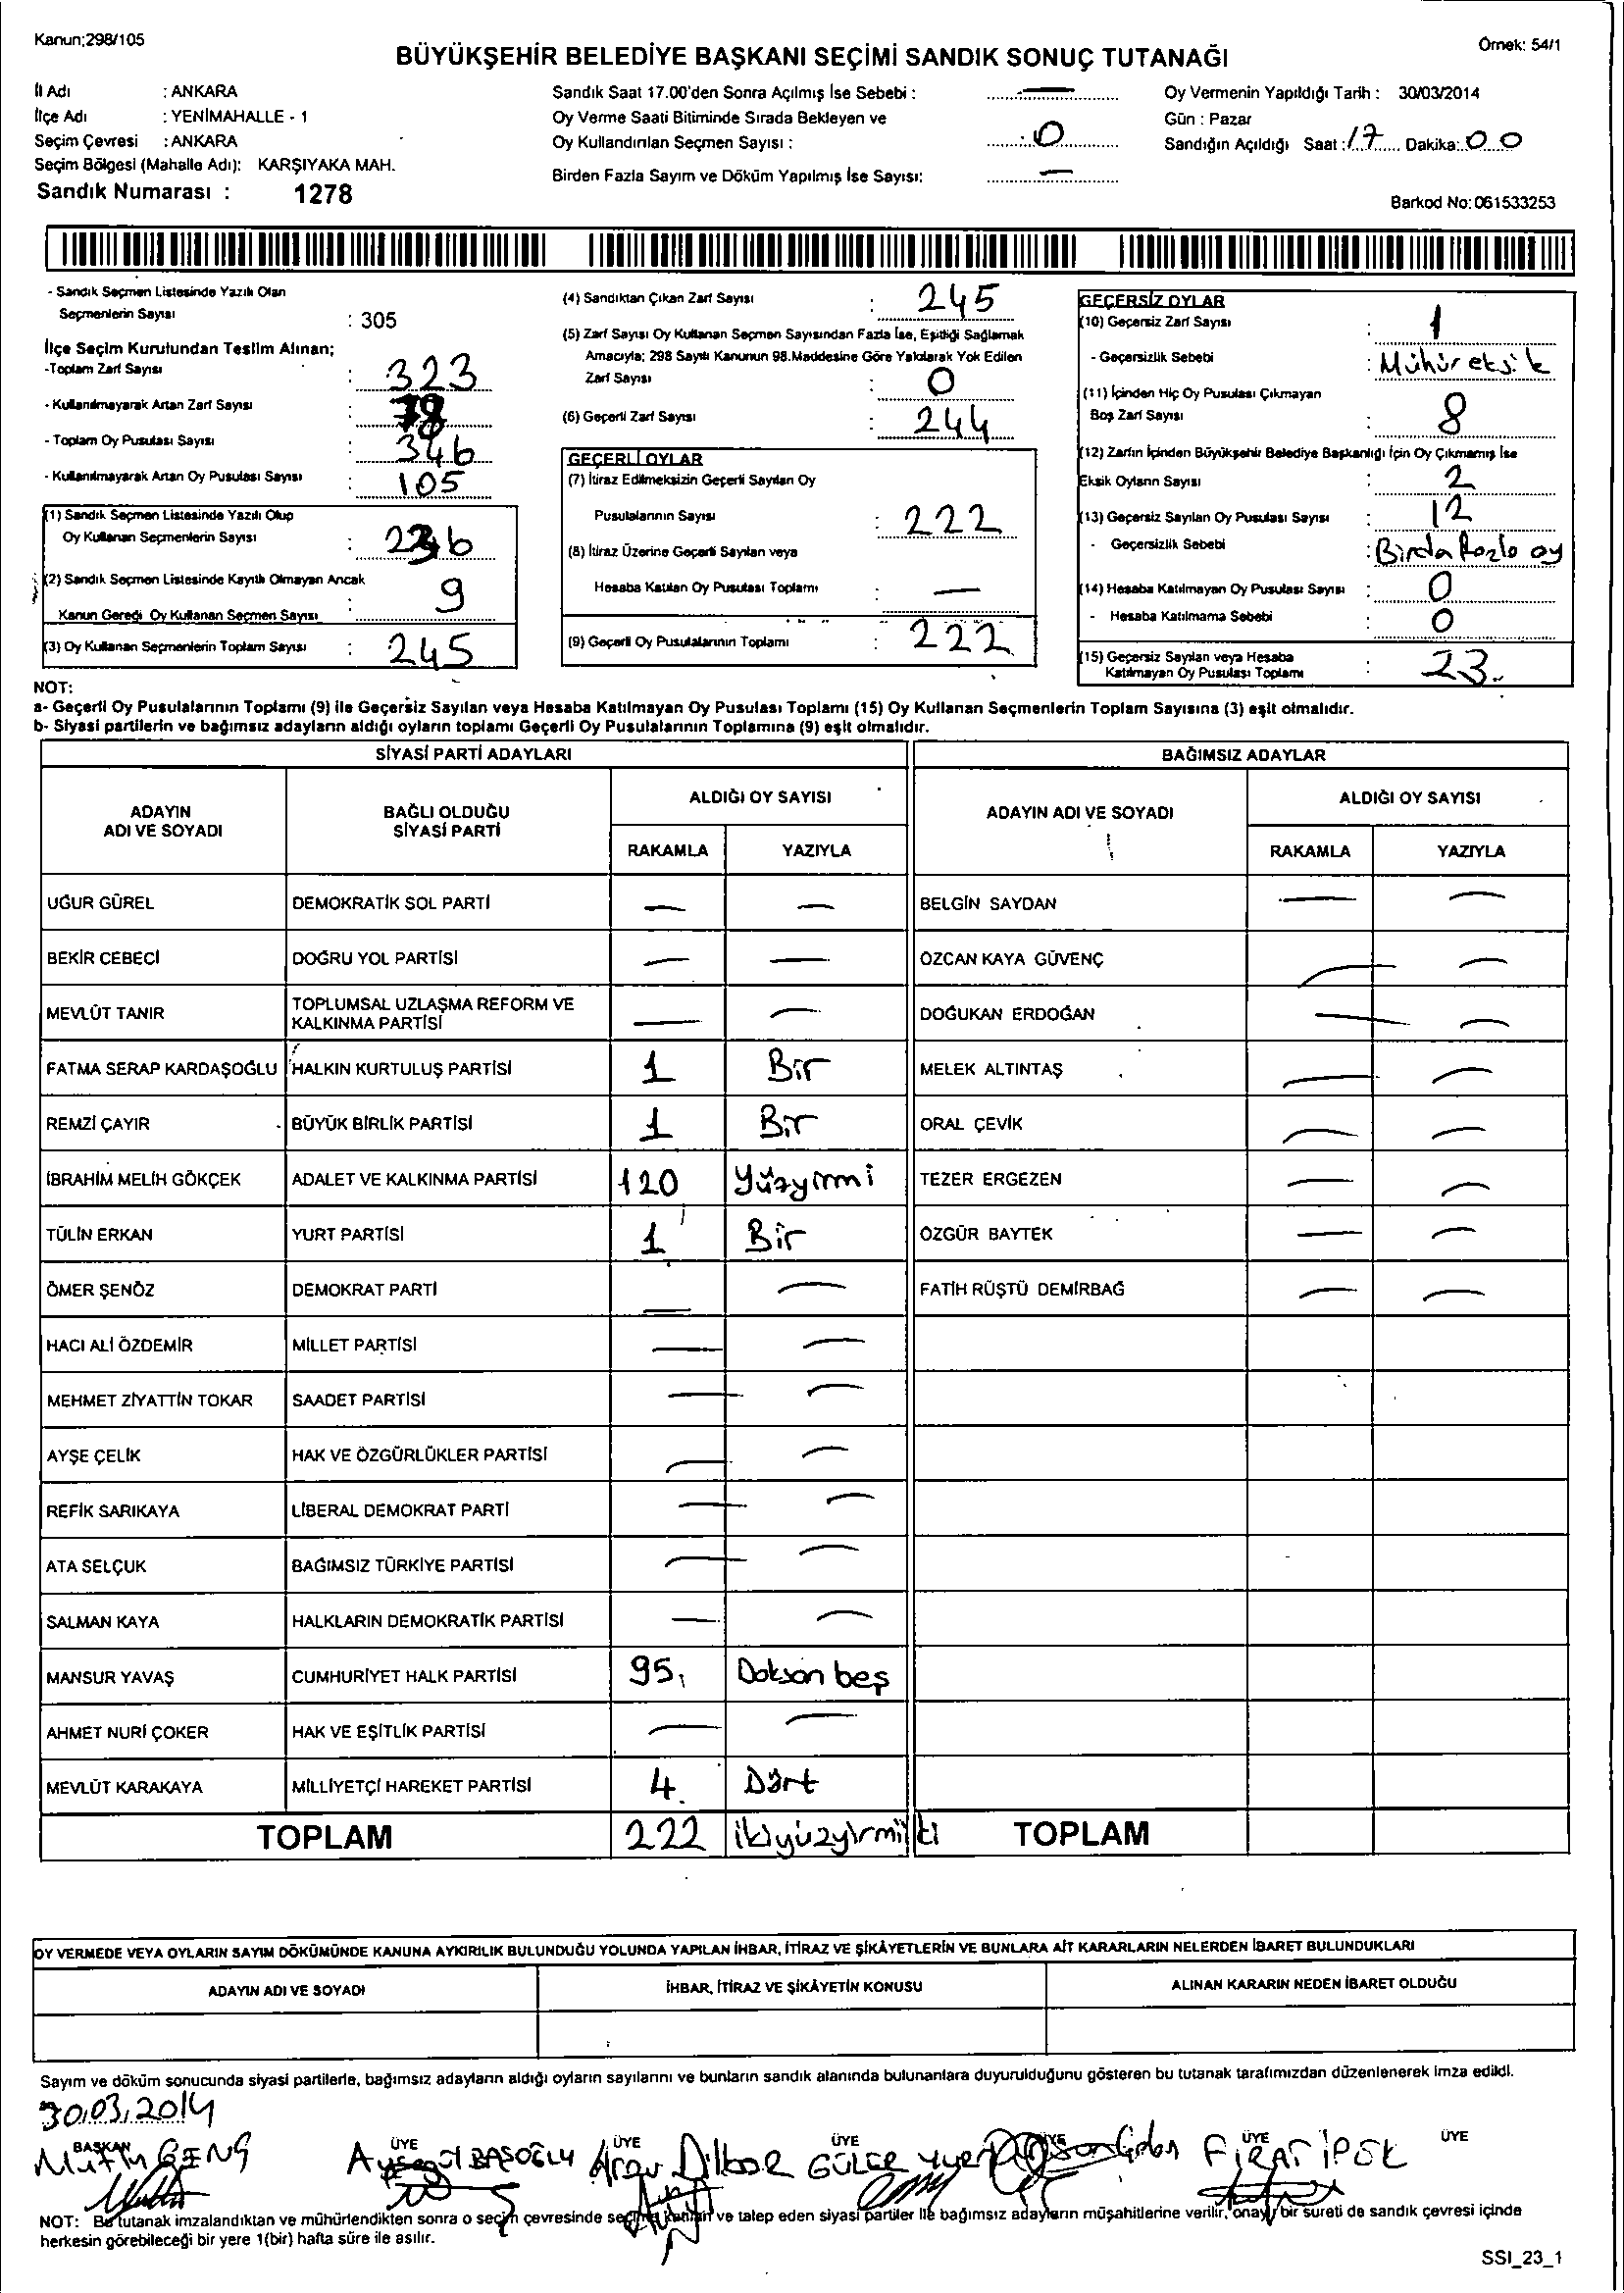 Kanun;298/105
Örnek: 54/1
BÜYÜKŞEHİR BELEDİYE BAŞKANI SEÇİMİ SANDIK SONUÇ TUTANAĞI
İl Adı : ANKARA
İlçe Adı : YENİMAHALLE - 1
Seçim Çevresi : ANKARA
Seçim Bölgesi (Mahalle Adı): KARŞIYAKA MAH.
Sandık Numarası : 1278
Sandık Saat 17.00'den Sonra Açılmış İse Sebebi : —
Oy Verme Saati Bitiminde Sırada Bekleyen ve
Oy Kullandırılan Seçmen Sayısı : 0
Birden Fazla Sayım ve Döküm Yapılmış İse Sayısı: —
Oy Vermenin Yapıldığı Tarih : 30/03/2014
Gün : Pazar
Sandığın Açıldığı Saat : 17 Dakika: 00
Barkod No: 061533253
- Sandık Seçmen Listesinde Yazılı Olan
Seçmenlerin Sayısı : 305
İlçe Seçim Kurulundan Teslim Alınan;
-Toplam Zarf Sayısı : 323
- Kullanılmayarak Artan Zarf Sayısı : 78
- Toplam Oy Pusulası Sayısı : 346
- Kullanılmayarak Artan Oy Pusulası Sayısı : 105
(1) Sandık Seçmen Listesinde Yazılı Olup
Oy Kullanan Seçmenlerin Sayısı : 236
(2) Sandık Seçmen Listesinde Kayıtlı Olmayan Ancak
Kanun Gereği Oy Kullanan Seçmen Sayısı : 9
(3) Oy Kullanan Seçmenlerin Toplam Sayısı : 245
(4) Sandıktan Çıkan Zarf Sayısı : 245
(5) Zarf Sayısı Oy Kullanan Seçmen Sayısından Fazla İse, Eşitliği Sağlamak
Amacıyla; 298 Sayılı Kanunun 98.Maddesine Göre Yakılarak Yok Edilen
Zarf Sayısı : 0
(6) Geçerli Zarf Sayısı : 244
GEÇERLİ OYLAR
(7) İtiraz Edilmeksizin Geçerli Sayılan Oy
Pusulalarının Sayısı : 222
(8) İtiraz Üzerine Geçerli Sayılan veya
Hesaba Katılan Oy Pusulası Toplamı : —
(9) Geçerli Oy Pusulalarının Toplamı : 222
GEÇERSİZ OYLAR
(10) Geçersiz Zarf Sayısı : 1
- Geçersizlik Sebebi : Mühür eksik
(11) İçinden Hiç Oy Pusulası Çıkmayan
Boş Zarf Sayısı : 8
(12) Zarfın İçinden Büyükşehir Belediye Başkanlığı İçin Oy Çıkmamış İse
Eksik Oyların Sayısı : 2
(13) Geçersiz Sayılan Oy Pusulası Sayısı : 12
- Geçersizlik Sebebi : Birda fazla oy
(14) Hesaba Katılmayan Oy Pusulası Sayısı : 0
- Hesaba Katılmama Sebebi : 0
(15) Geçersiz Sayılan veya Hesaba
Katılmayan Oy Pusulası Toplamı : 23.
NOT:
a- Geçerli Oy Pusulalarının Toplamı (9) ile Geçersiz Sayılan veya Hesaba Katılmayan Oy Pusulası Toplamı (15) Oy Kullanan Seçmenlerin Toplam Sayısına (3) eşit olmalıdır.
b- Siyasi partilerin ve bağımsız adayların aldığı oyların toplamı Geçerli Oy Pusulalarının Toplamına (9) eşit olmalıdır.
SİYASİ PARTİ ADAYLARI
BAĞIMSIZ ADAYLAR
ADAYIN ADI VE SOYADI
BAĞLI OLDUĞU SİYASİ PARTİ
ALDIĞI OY SAYISI
RAKAMLA YAZIYLA
ADAYIN ADI VE SOYADI
ALDIĞI OY SAYISI
RAKAMLA YAZIYLA
UĞUR GÜREL DEMOKRATİK SOL PARTİ — — BELGİN SAYDAN — —
BEKİR CEBECİ DOĞRU YOL PARTİSİ — — ÖZCAN KAYA GÜVENÇ — —
MEVLÜT TANIR TOPLUMSAL UZLAŞMA REFORM VE KALKINMA PARTİSİ — — DOĞUKAN ERDOĞAN — —
FATMA SERAP KARDAŞOĞLU HALKIN KURTULUŞ PARTİSİ 1 Bir MELEK ALTINTAŞ — —
REMZİ ÇAYIR BÜYÜK BİRLİK PARTİSİ 1 Bir ORAL ÇEVİK — —
İBRAHİM MELİH GÖKÇEK ADALET VE KALKINMA PARTİSİ 120 Yüzyirmi TEZER ERGEZEN — —
TÜLİN ERKAN YURT PARTİSİ 1 Bir ÖZGÜR BAYTEK — —
ÖMER ŞENÖZ DEMOKRAT PARTİ — — FATİH RÜŞTÜ DEMİRBAĞ — —
HACI ALİ ÖZDEMİR MİLLET PARTİSİ — —
MEHMET ZİYATTİN TOKAR SAADET PARTİSİ — —
AYŞE ÇELİK HAK VE ÖZGÜRLÜKLER PARTİSİ — —
REFİK SARIKAYA LİBERAL DEMOKRAT PARTİ — —
ATA SELÇUK BAĞIMSIZ TÜRKİYE PARTİSİ — —
SALMAN KAYA HALKLARIN DEMOKRATİK PARTİSİ — —
MANSUR YAVAŞ CUMHURİYET HALK PARTİSİ 95 Doksan beş
AHMET NURİ ÇOKER HAK VE EŞİTLİK PARTİSİ — —
MEVLÜT KARAKAYA MİLLİYETÇİ HAREKET PARTİSİ 4 Dört
TOPLAM 222 ikiyüzyirmiiki TOPLAM
OY VERMEDE VEYA OYLARIN SAYIM DÖKÜMÜNDE KANUNA AYKIRILIK BULUNDUĞU YOLUNDA YAPILAN İHBAR, İTİRAZ VE ŞİKÂYETLERİN VE BUNLARA AİT KARARLARIN NELERDEN İBARET BULUNDUKLARI
ADAYIN ADI VE SOYADI İHBAR, İTİRAZ VE ŞİKÂYETİN KONUSU ALINAN KARARIN NEDEN İBARET OLDUĞU
Sayım ve döküm sonucunda siyasi partilerle, bağımsız adayların aldığı oyların sayılarını ve bunların sandık alanında bulunanlara duyurulduğunu gösteren bu tutanak tarafımızdan düzenlenerek imza edildi.
30.03.2014
BAŞKAN ÜYE ÜYE ÜYE ÜYE ÜYE ÜYE
GENÇ BAŞOĞLU Dilber FIRAT İPEK
NOT: Bu tutanak imzalandıktan ve mühürlendikten sonra o seçim çevresinde seçime katılan ve talep eden siyasi partiler ile bağımsız adayların müşahitlerine verilir, onaylı bir sureti de sandık çevresi içinde
herkesin görebileceği bir yere 1(bir) hafta süre ile asılır.
SSI_23_1